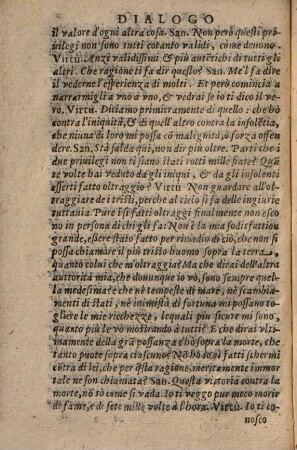 DIALOGO
il valore d'ogni altra cosa. San. Non però questi pri-
uilegi non sono tutti cotanto validi, come deuono.
Virtù. Anzi validissimi & più autētichi di tutti gli
altri. Che ragione ti fa dir questo? San. Me'l fa dire
il vederne l'esperienza di molti. Et però comincia a
narrarmigli a vno a vno, & vedrai se io ti dico il ve-
ro. Virtù. Diciamo primieramente di quello: che hò
contra l'iniquità, & di quell'altro contra la insolētia,
che niuna di loro mi possa cō malignità, o forza offen
dere. San. Stà salda quì, non dir più oltre. Parti che i
due priuilegi non ti siano stati rotti mille fiate? Quā
te volte hai veduto dagli iniqui, & da gli insolenti
esserti fatto oltraggio? Virtù. Non guardare all'ol-
traggiare de i tristi, perche al cielo si fa delle ingiurie
tuttauia. Pure i sì fatti oltraggi finalmente non esco
no in persona di chi gli fa: Non è la mia sodisfattion
grande, essere stato fatto per rimedio di ciò, che non si
possa chiamare il più tristo huomo sopra la terra,
quanto colui che m'oltraggia? Ma che dirai dell'altra
auttorità mia, che dounque io vò, sono sempre quel-
la medesima? che nè tempeste di mare, nè scambia-
menti di stati, nè inimistà di fortuna mi possano to-
gliere le mie ricchezze, lequali piu sicure mi sono,
quanto più le vò mostrando à tutti? E che dirai vlti-
mamente della grā possanza c'hò sopra la morte, che
tanto puote sopra ciascuno? Nō hò io sì fatti schermi
cōtra di lei, che per q̃sta ragione, meritamente immor
tale ne son chiamata? San. Questa vittoria contra la
morte, nō sò come si vada. Io ti veggo pur meco morir
di fame, e di sete mille volte à l'hora. Virtù. Io ti co-
nosco